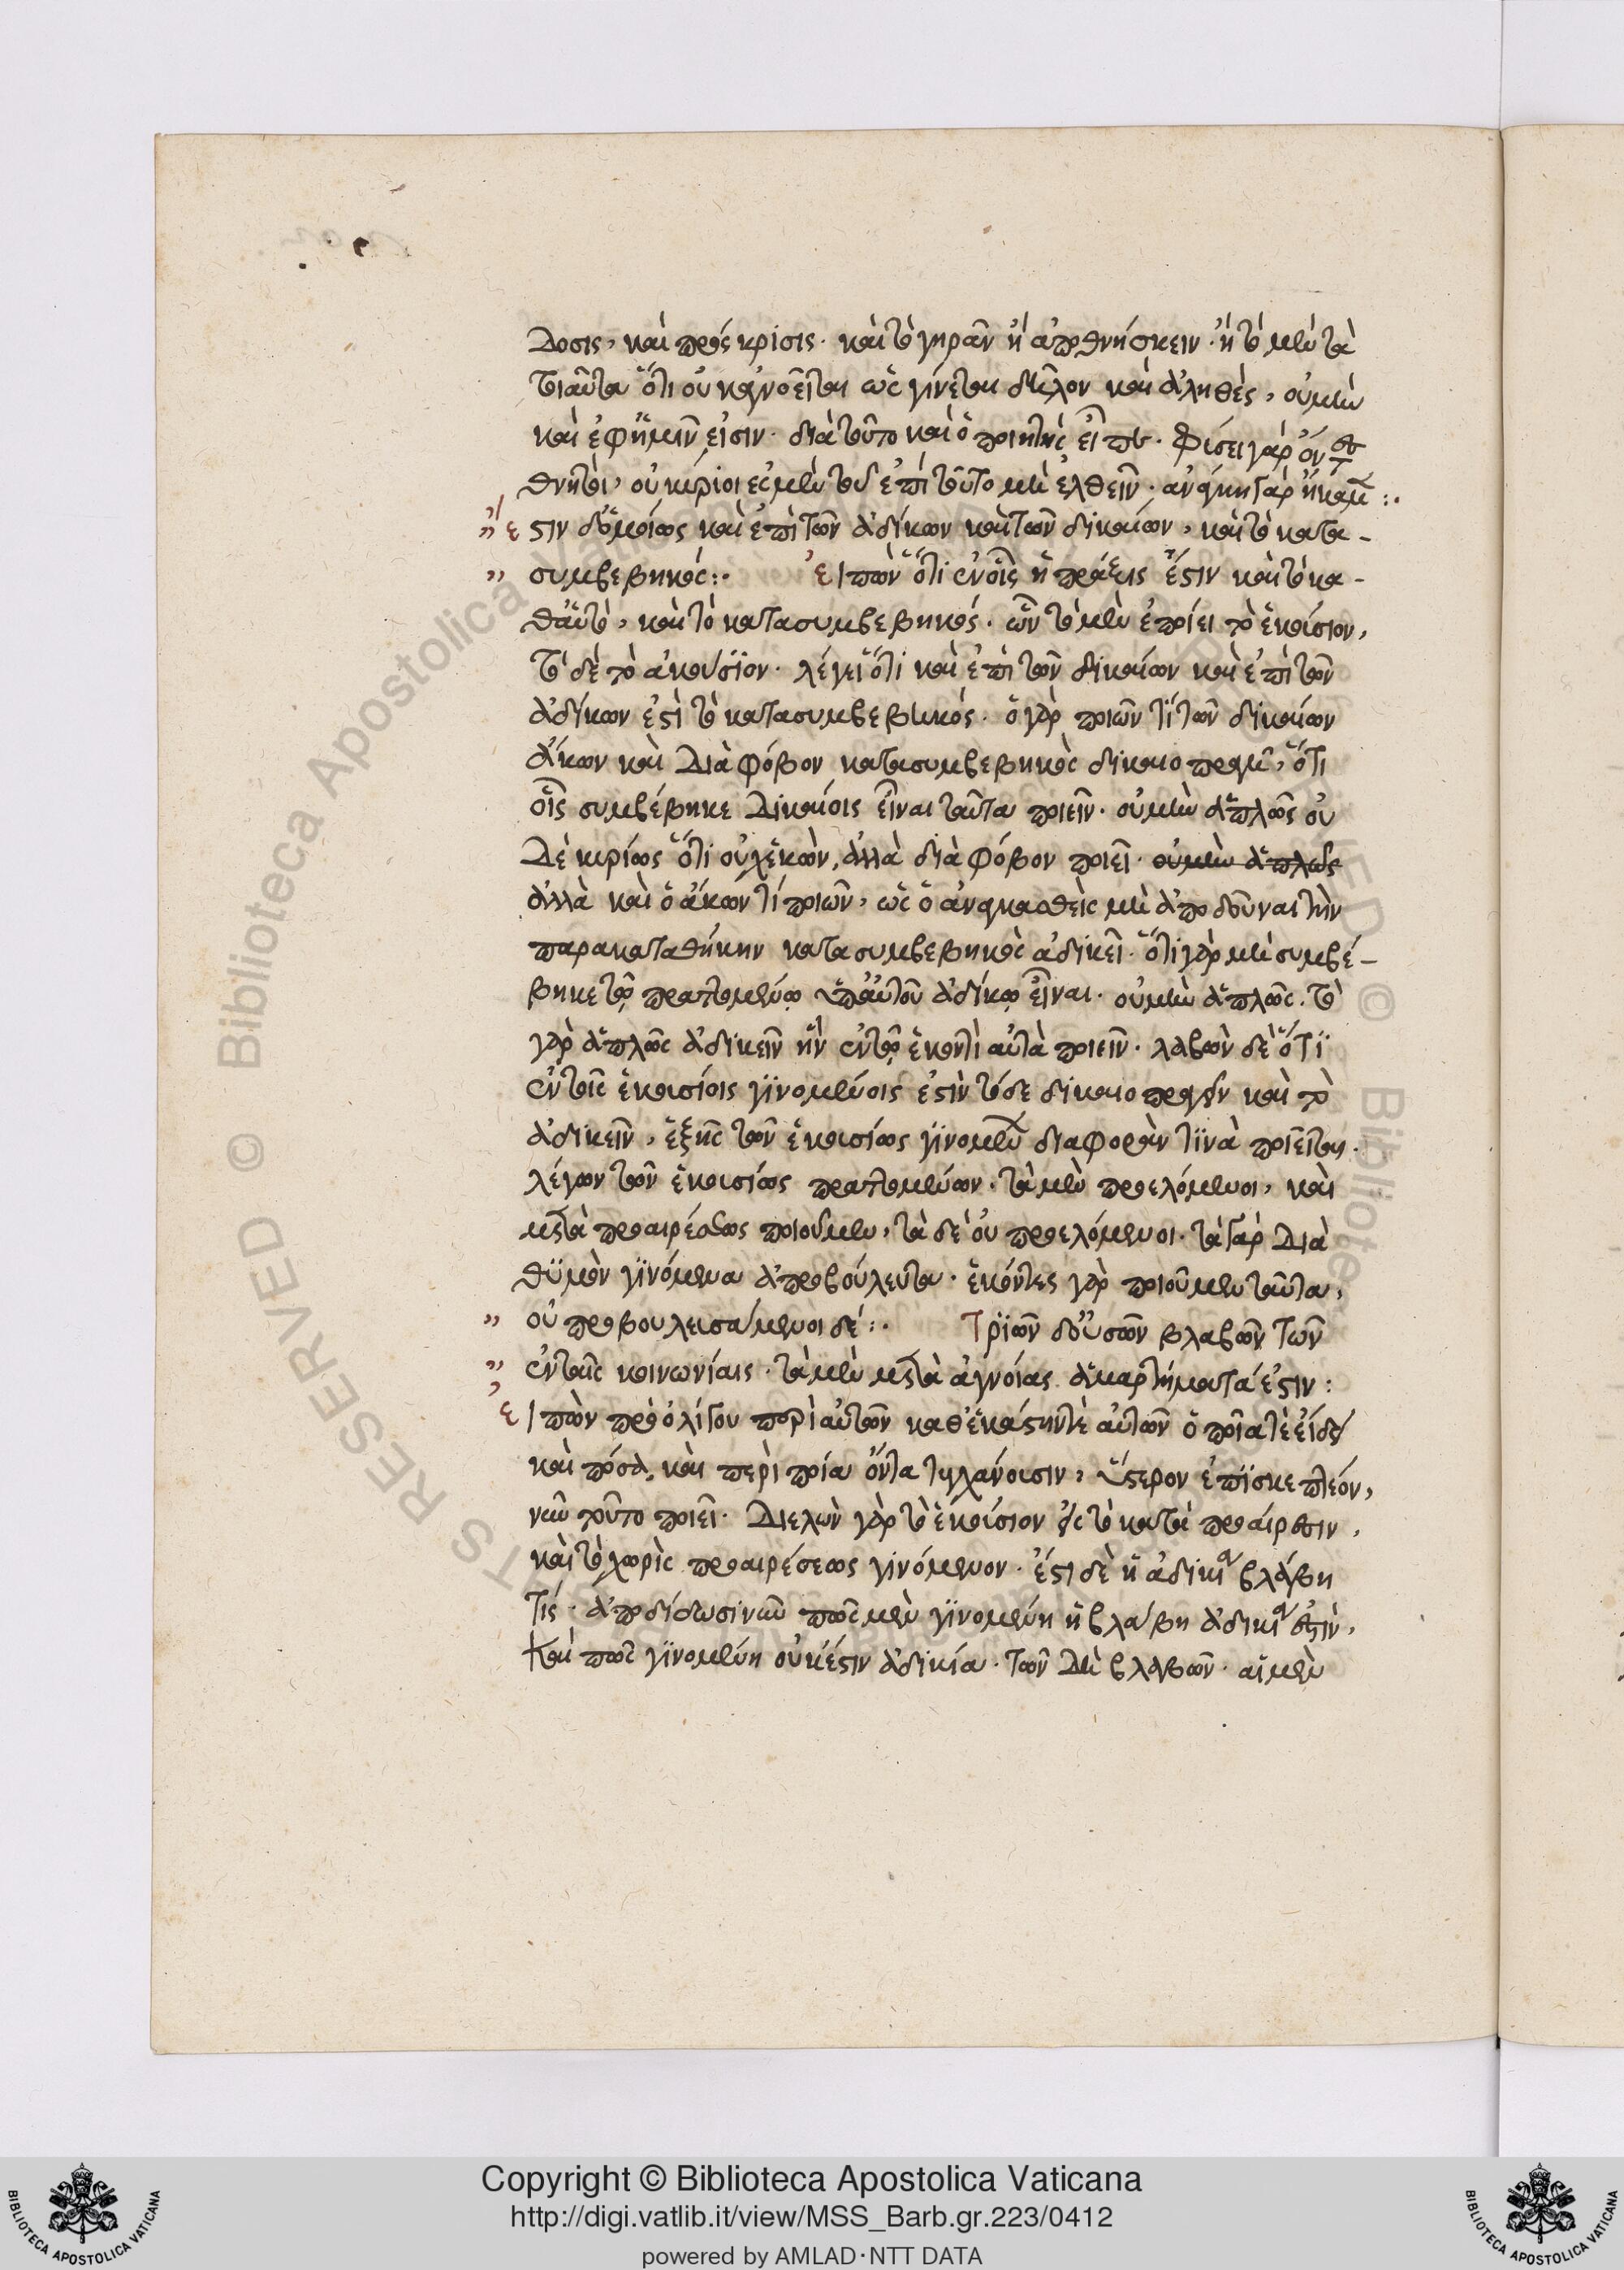 δοσις, καὶ πρόσκρισις. καὶ τὸ γηρᾶν ἢ ἀποθνήσκειν. ἢ τὸ μὲν τὰ
τοιαῦτα ὅτι οὐκ ἀγνοεῖται ὡς γίνεται δῆλον καὶ ἀληθὲς, οὐ μὴν
καὶ ἐφ' ἡμῖν εἰσιν. διὰ τοῦτο καὶ ὁ ποιητὴς εἶπε. φύσει γὰρ ὄντες
θνητοὶ, οὐ κύριοι ἐσμὲν τοῦ ἐπὶ τοῦτο μὴ ἐλθεῖν. ἀνάγκη γὰρ :.
ἔστιν δ' ὁμοίως καὶ ἐπὶ τῶν ἀδίκων καὶ τῶν δικαίων, καὶ τὸ κατα-
συμβεβηκός:. εἰπὼν ὅτι ἐν οἷς ἡ πρᾶξις ἔστιν καὶ τὸ κα-
θ' αὑτὸ, καὶ τὸ κατασυμβεβηκός. ὧν τὸ μὲν ἐποίει τὸ ἑκούσιον,
τὸ δὲ τὸ ἀκούσϊον. λέγει ὅτι καὶ ἐπὶ τῶν δικαίων καὶ ἐπὶ τῶν
ἀδίκων ἐστὶ τὸ κατασυμβεβηκός. ὁ γὰρ ποιῶν τὶ τῶν δικαίων
ἄκων καὶ διὰ φόβον κατασυμβεβηκὸς δικαιοπραγεῖ, ὅτι
οἷς συμβέβηκε δικαίοις εἶναι ταῦτα ποιεῖν. οὐ μὴν ἁπλῶς οὐ
δὲ κυρίως ὅτι οὐχ ἑκὼν, ἀλλὰ διὰ φόβον ποιεῖ. οὐ μὴν ἁπλῶς
ἀλλὰ καὶ ὁ ἄκων τί ποιῶν, ὡς ὁ ἀναγκασθεὶς μὴ ἀποδοῦναι τὴν
παρακαταθήκην κατασυμβεβηκὸς ἀδικεῖ. ὅτι γὰρ μὴ συμβέ-
βηκε τῷ πραττομένῳ ὑπ' αὐτοῦ ἀδίκῳ εἶναι. οὐ μὴν ἁπλῶς. τὸ
γὰρ ἁπλῶς ἀδικεῖν ἦν ἐν τῷ ἑκοντὶ αὐτὰ ποιεῖν. λαβὼν δὲ ὅτϊ
ἐν τοῖς ἑκουσίοις γϊνομένοις ἐστὶν τόδε δικαιοπραγεῖν καὶ τὸ
ἀδικεῖν, ἑξῆς τῶν ἑκουσίως γϊνομένων διαφορὰν τϊνὰ ποιεῖται.
λέγων τῶν ἑκουσίως πραττομένων. τὰ μὲν προελόμενοι, καὶ
μετὰ προαιρέσεως ποιοῦμεν, τὰ δὲ οὐ προελόμενοι. τὰ γὰρ διὰ
θϋμὸν γϊνόμενα ἀπροβούλευτα. ἑκόντες γὰρ ποιοῦμεν ταῦτα,
οὐ προβουλευσάμενοι δέ:. Τρϊῶν δ' οὐσῶν βλαβῶν τῶν
ἐν ταῖς κοινωνίαις. τὰ μὲν μετὰ ἀγνοίας ἁμαρτήματά ἐστιν:
εἰπὼν πρὸ ὀλίγου περὶ αὐτῶν καθ' ἑκάστην τὲ αὐτῶν ὁποῖα τὲ εἴδη
καὶ πόσα, καὶ περὶ ποῖα ὄντα τυγχάνουσιν, ὕστερον ἐπϊσκεπτέον,
νῦν τοῦτο ποιεῖ. διελὼν γὰρ τὸ ἑκούσιον εἰς τὸ κατὰ προαίρεσιν,
καὶ τὸ χωρὶς προαιρέσεως γϊνόμενον. ἔστι δὲ ἡ ἀδικία βλάβη
τίς. ἀποδίδωσι νῦν πῶς μὲν γϊνομένη ἡ βλάβη ἀδικία ἐστὶν,
καὶ πῶς γϊνομένη οὐκ ἔστιν ἀδικία. τῶν δὴ βλαβῶν. αἱ μὲν
Copyright © Biblioteca Apostolica Vaticana
http://digi.vatlib.it/view/MSS_Barb.gr.223/0412
powered by AMLAD·NTT DATA
BIBLIOTECA APOSTOLICA VATICANA
BIBLIOTECA APOSTOLICA VATICANA